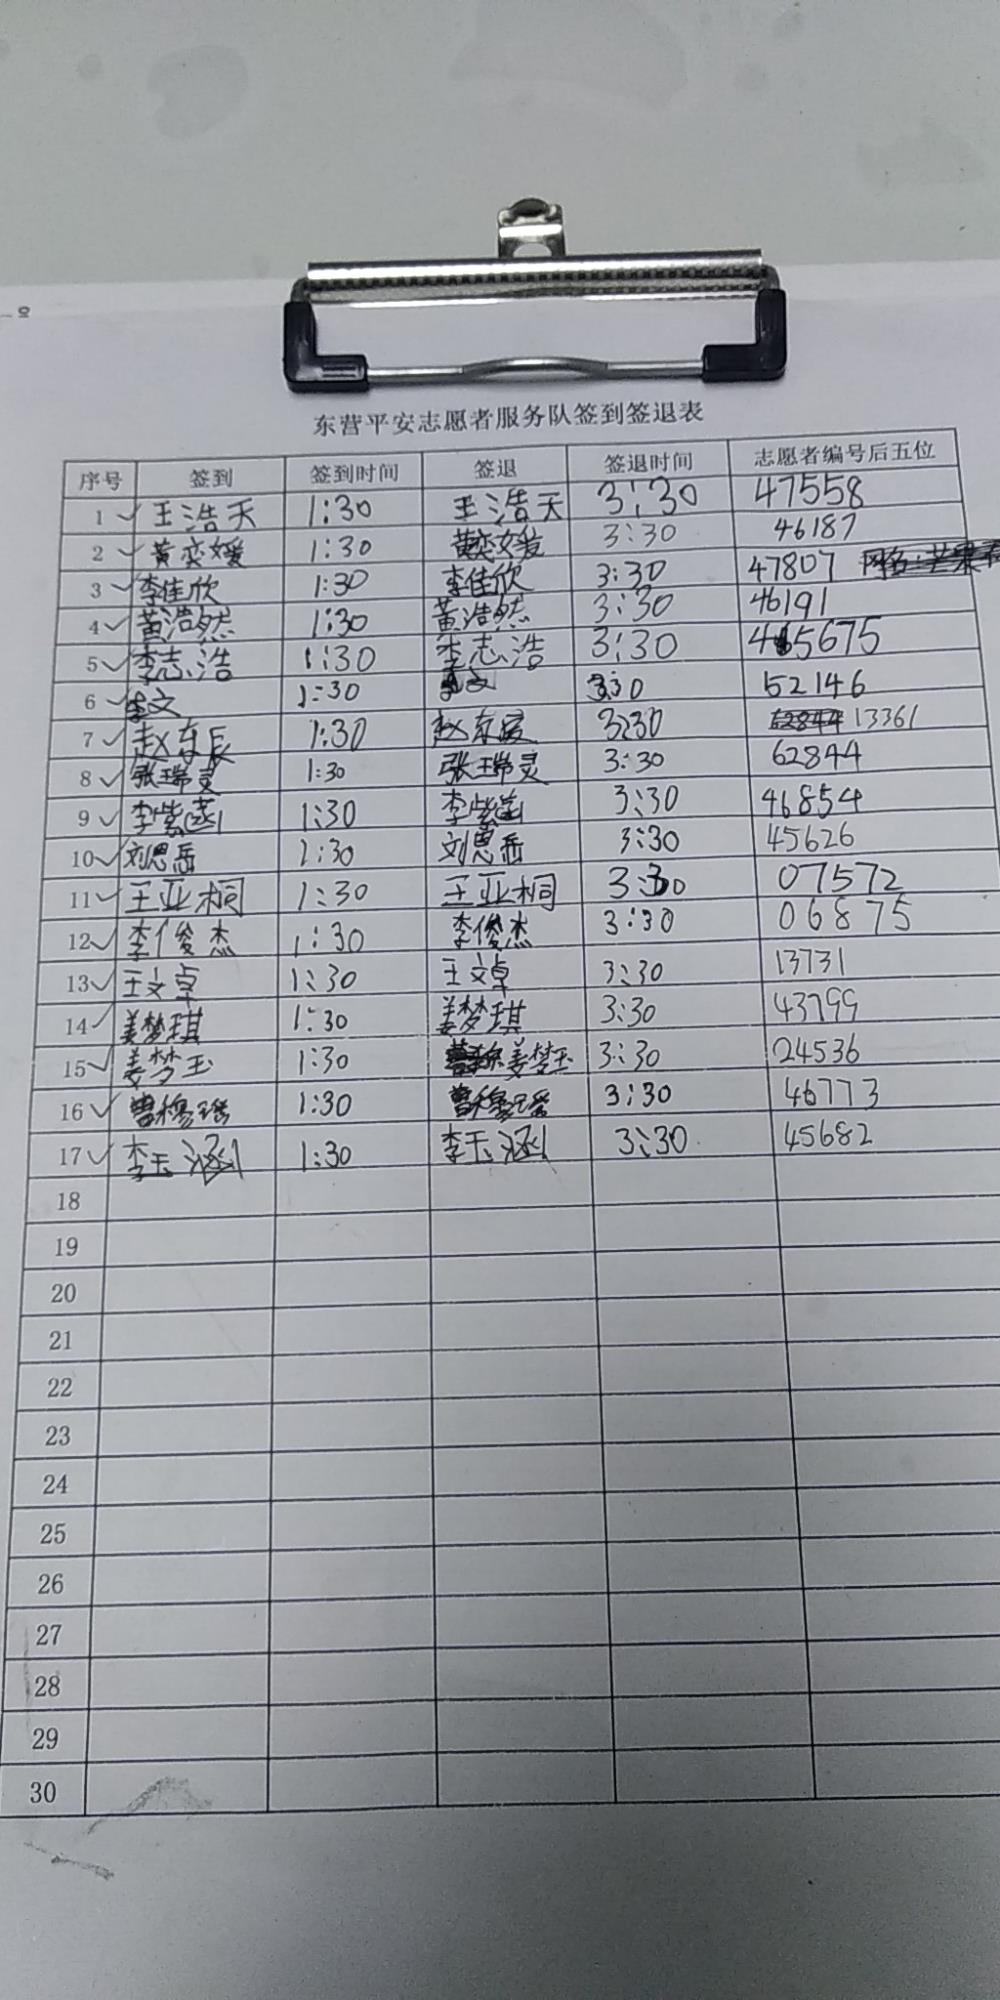 东营平安志愿者服务队签到签退表
序号 签到 签到时间 签退 签退时间 志愿者编号后五位
1 王浩天 1:30 王浩天 3:30 47558
2 黄奕媛 1:30 黄奕媛 3:30 46187
3 李佳欣 1:30 李佳欣 3:30 47807
4 黄浩然 1:30 黄浩然 3:30 46191
5 李志浩 1:30 李志浩 3:30 45675
6 李文 1:30 李文 3:30 52146
7 赵东辰 1:30 赵东宸 3:30 13361
8 张瑞灵 1:30 张瑞灵 3:30 62844
9 李紫菡 1:30 李紫菡 3:30 46854
10 刘思岳 1:30 刘思岳 3:30 45626
11 王亚桐 1:30 王亚桐 3:30 07572
12 李俊杰 1:30 李俊杰 3:30 06875
13 王文卓 1:30 王文卓 3:30 13731
14 姜梦琪 1:30 姜梦琪 3:30 43799
15 姜梦玉 1:30 姜梦玉 3:30 24536
16 曹穆瑶 1:30 曹穆瑶 3:30 46773
17 李玉涵 1:30 李玉涵 3:30 45682
18
19
20
21
22
23
24
25
26
27
28
29
30